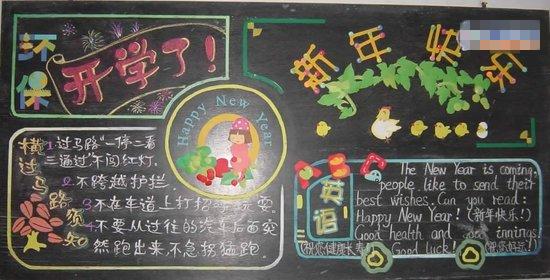 环保
开学了!
新年
Happy New Year
横过马路须知
1.过马路“一停二看
三通过”不闯红灯.
2.不跨越护拦.
3.不在车道上打招呼玩耍.
4.不要从过往的汽车后面突
然跑出来,不急拐猛跑.
英语
The New Year is coming,
people like to send their
best wishes. Can you read:
Happy New Year! (新年快乐!)
Good health and good innings!
(祝你健康长寿!) Good luck! (祝您好运!)